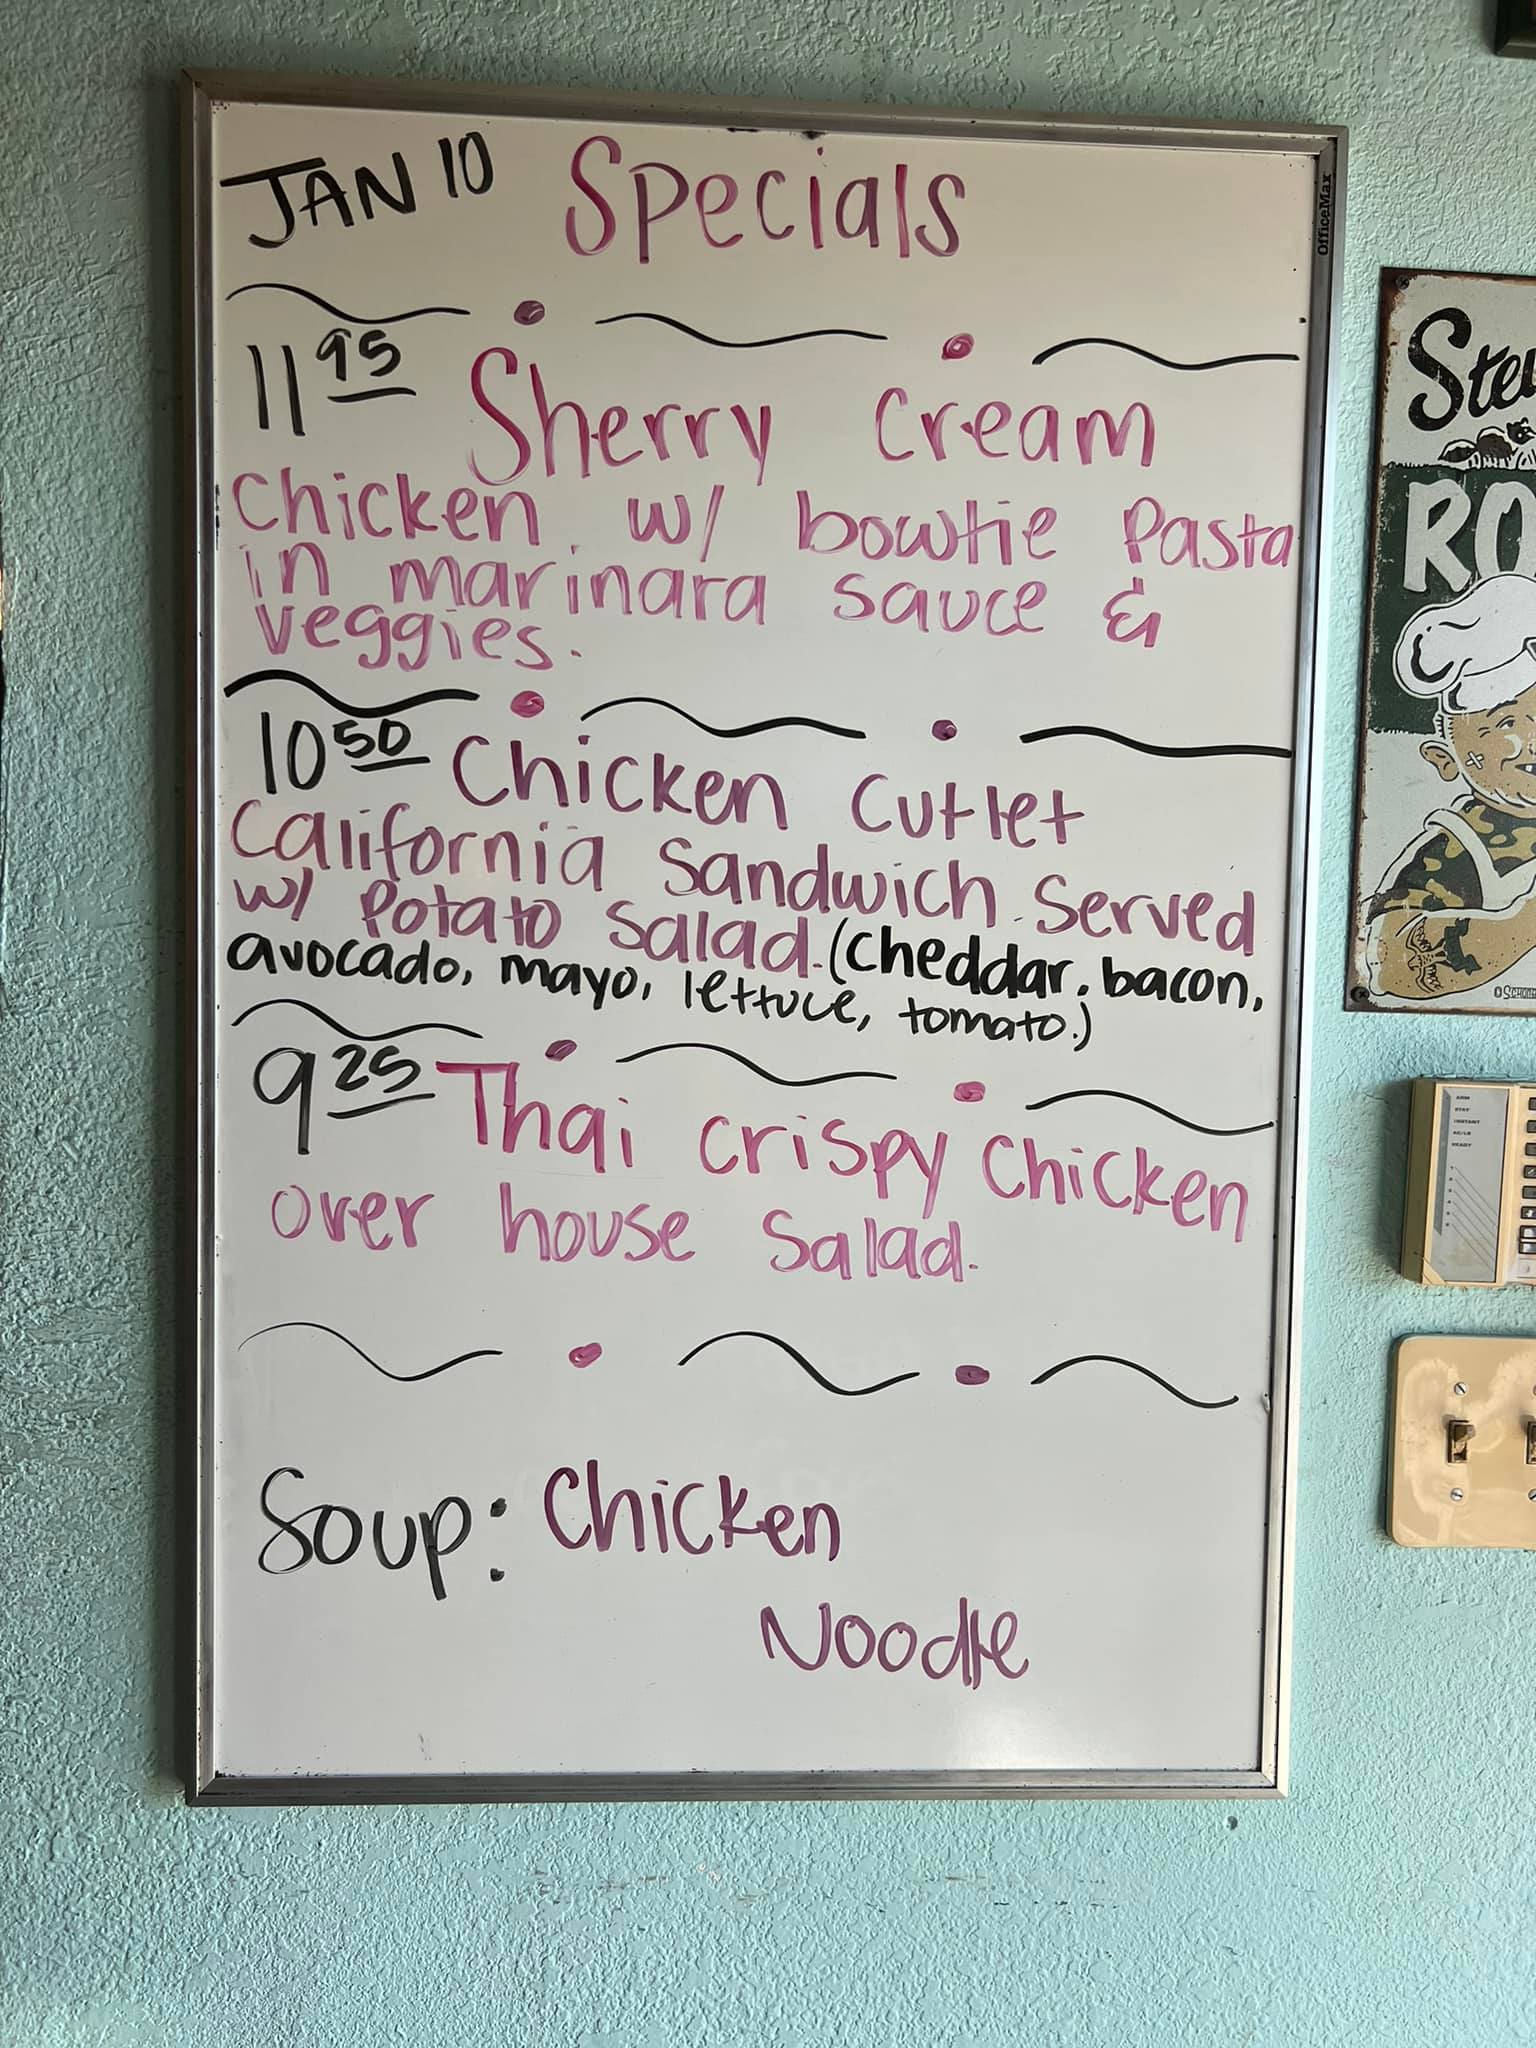 JAN 10 Specials
11 95 Sherry Cream
Chicken w/ bowtie Pasta
in marinara sauce &
veggies.
10 50 Chicken Cutlet
California Sandwich Served
w/ Potato Salad. (Cheddar, bacon,
avocado, mayo, lettuce, tomato.)
9 25 Thai crispy Chicken
over house Salad.
Soup: Chicken
Noodle
OfficeMax
ARM
STAY
INSTANT
READY